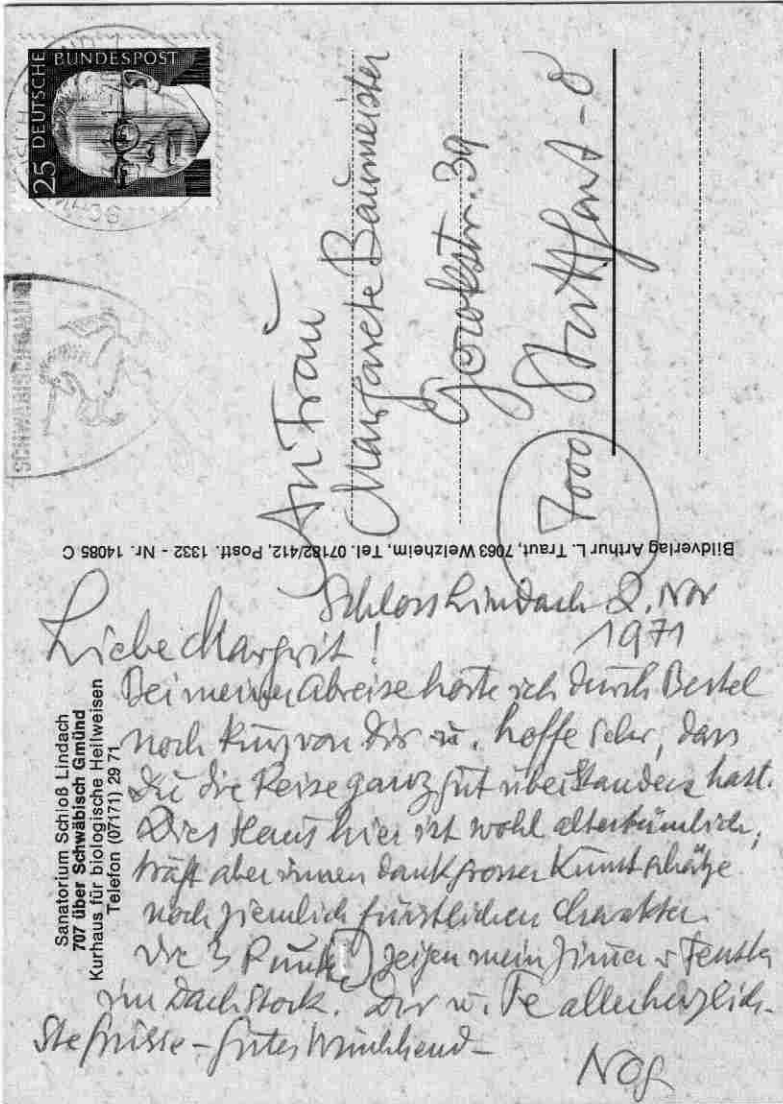 25 DEUTSCHE BUNDESPOST
SCHWÄBISCH GMÜND
An Frau
Margarete Baumeister
Gerokstr. 39
7000 Stuttgart-8
Bildverlag Arthur L. Traut, 7063 Welzheim, Tel. 07182/412, Postf. 1332 - Nr. 14085 C
Sanatorium Schloß Lindach
707 über Schwäbisch Gmünd
Kurhaus für biologische Heilweisen
Telefon (07171) 29 71
Schloss Lindach 2. Nov
1971
Liebe Margrit!
Bei meiner Abreise hörte ich durch Bertel
noch kurz von Dir u. hoffe sehr, dass
Du die Reise ganz gut überstanden hast.
Dies Haus hier ist wohl altertümlich,
trägt aber innen dank grosser Kunstschätze
noch ziemlich fürstlichen Charakter.
Die 3 Punkte zeigen mein Zimmer Fenster
im Dachstock. Dir u. Fe allerherzlich-
ste Grüsse -